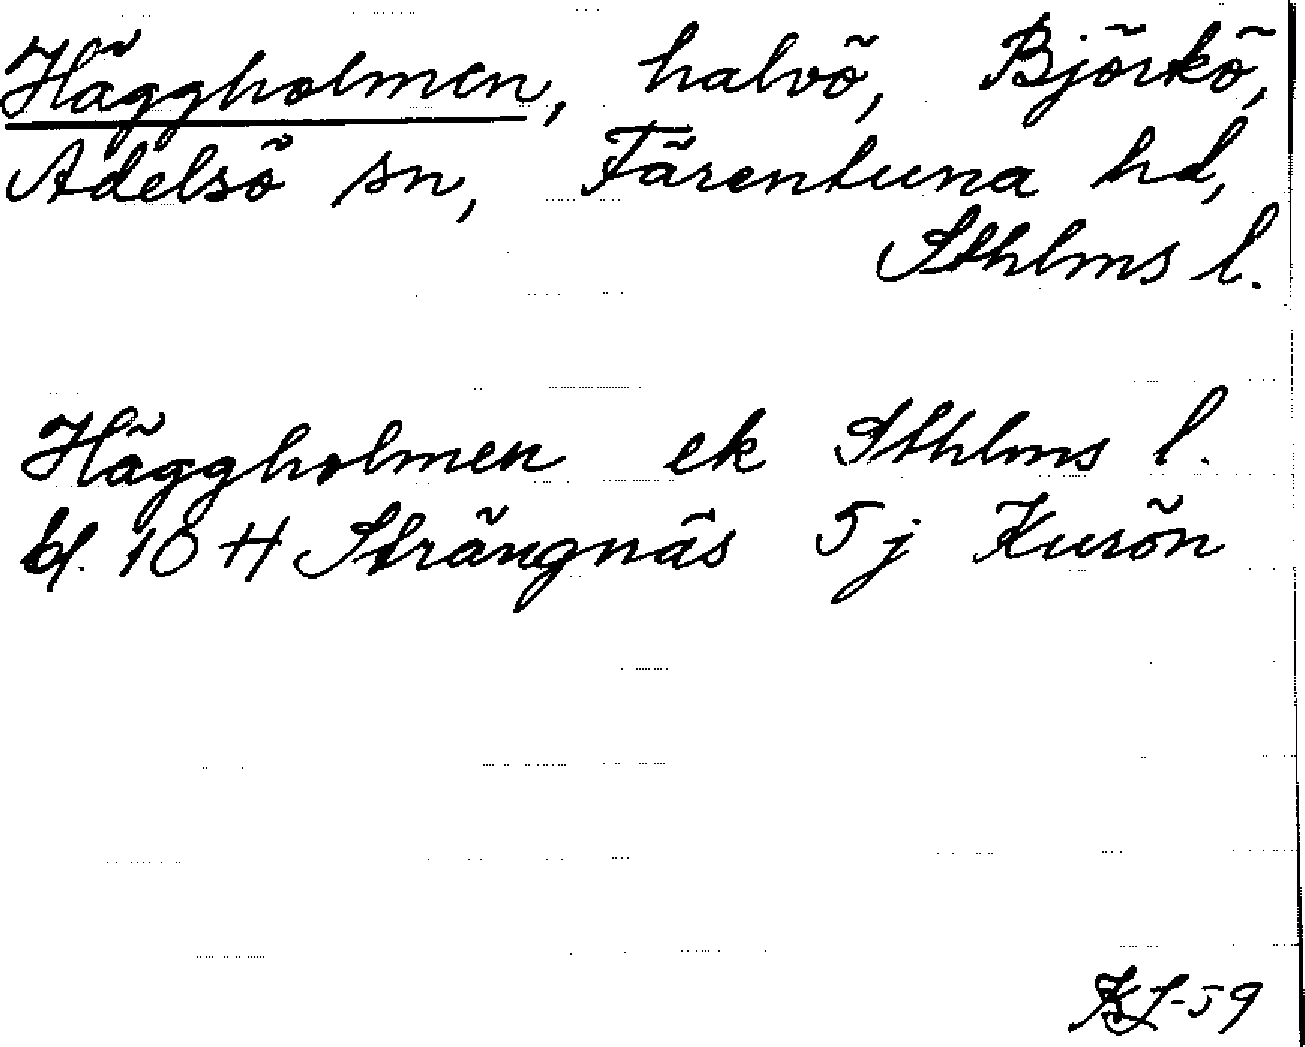 Häggholmen, halvö, Björkö,
Adelsö sn, Färentuna hd,
Sthlms l.
Häggholmen ek Sthlms l.
bl. 10 H Strängnäs 5 j Kurön
KJ-59